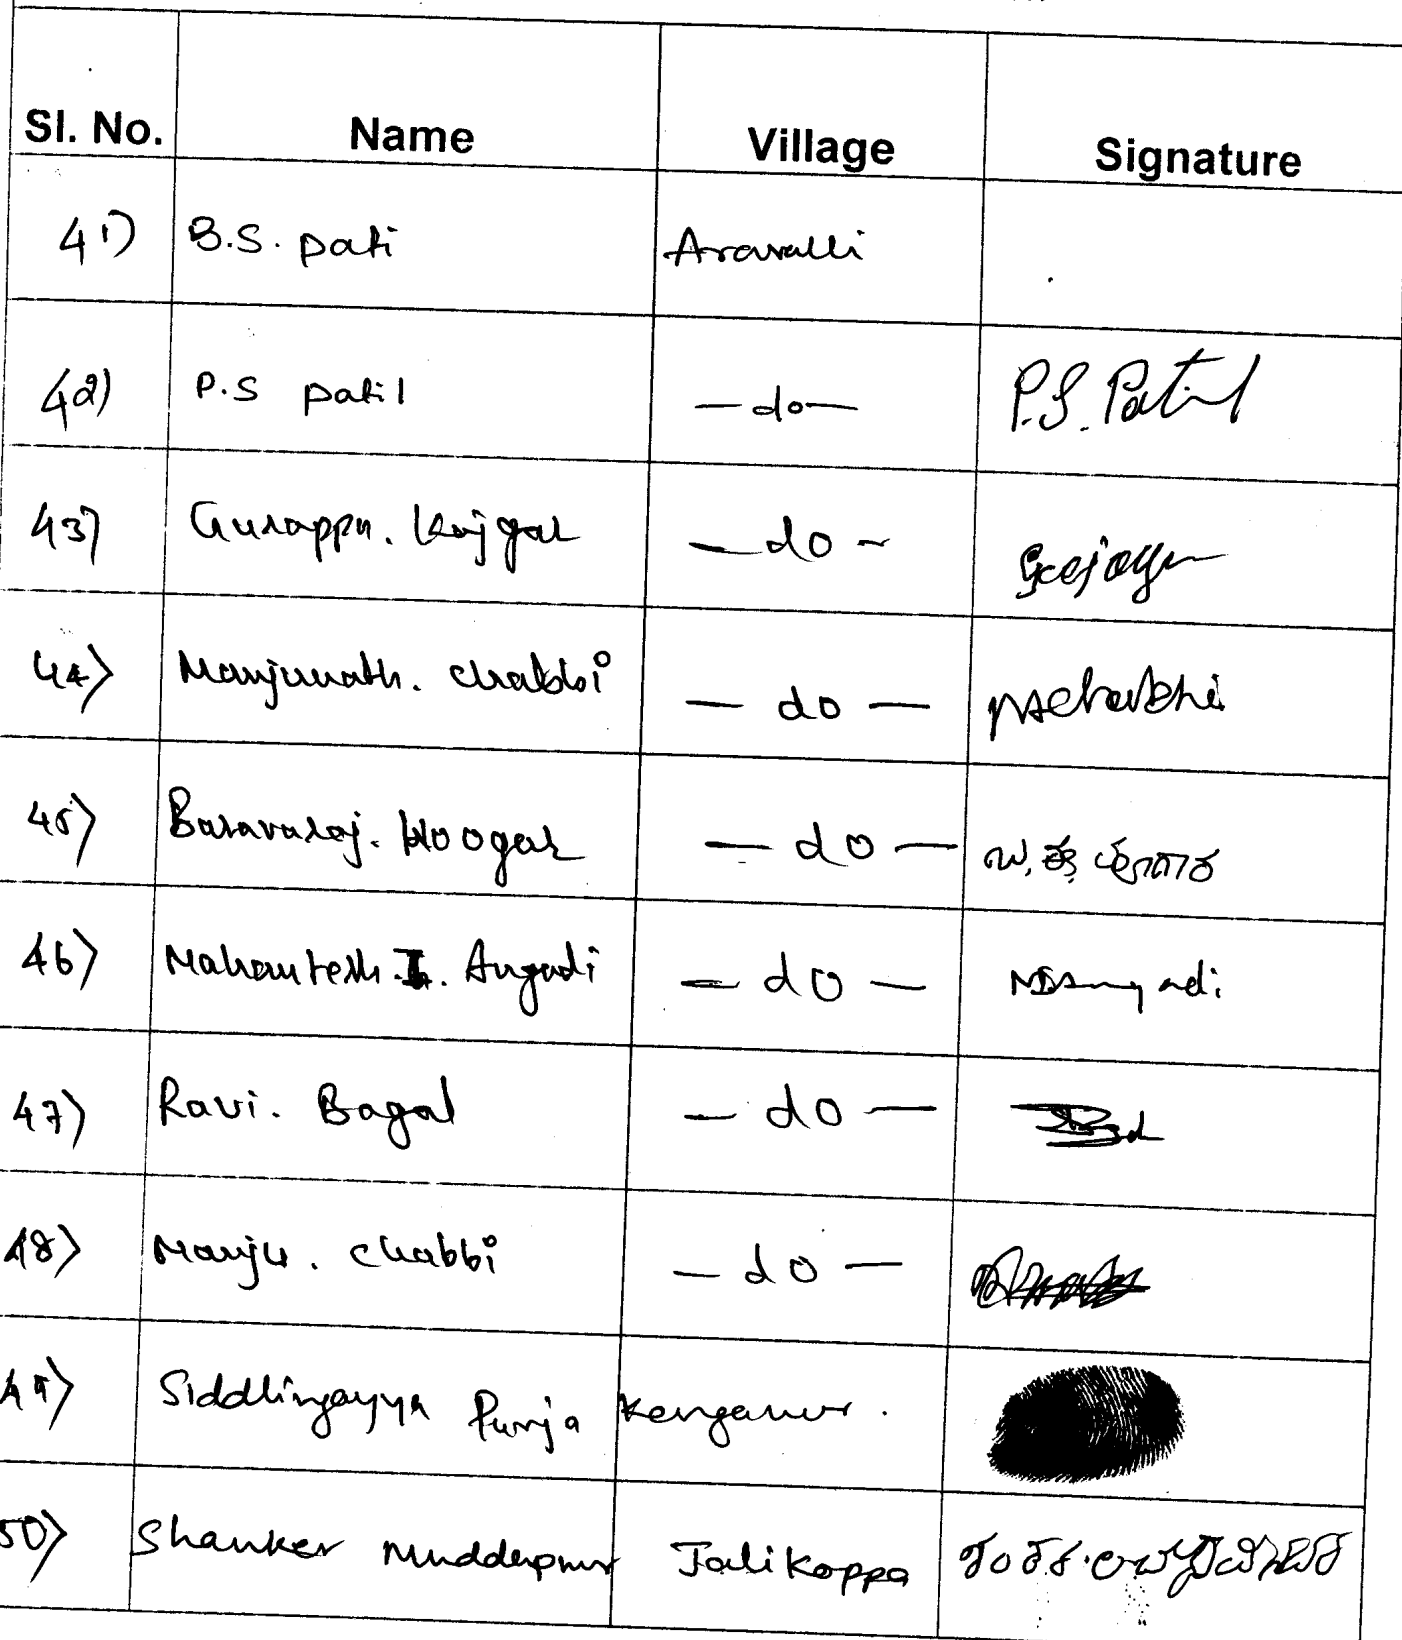 Sl. No. Name Village Signature
41) B.S. pati Aravalli
42) P.S patil —do— P.S. Patil
43) Gurappa. —do—
44) Manjunath. chabbi —do—
45) Basavaraj. Hoogar —do—
46) Mahantesh. I. Angadi —do—
47) Ravi. Bagal —do—
48) Manju. chabbi —do—
49) Siddlingayya Purja Kenganur.
50) Shanker Muddenpur Jalikoppa